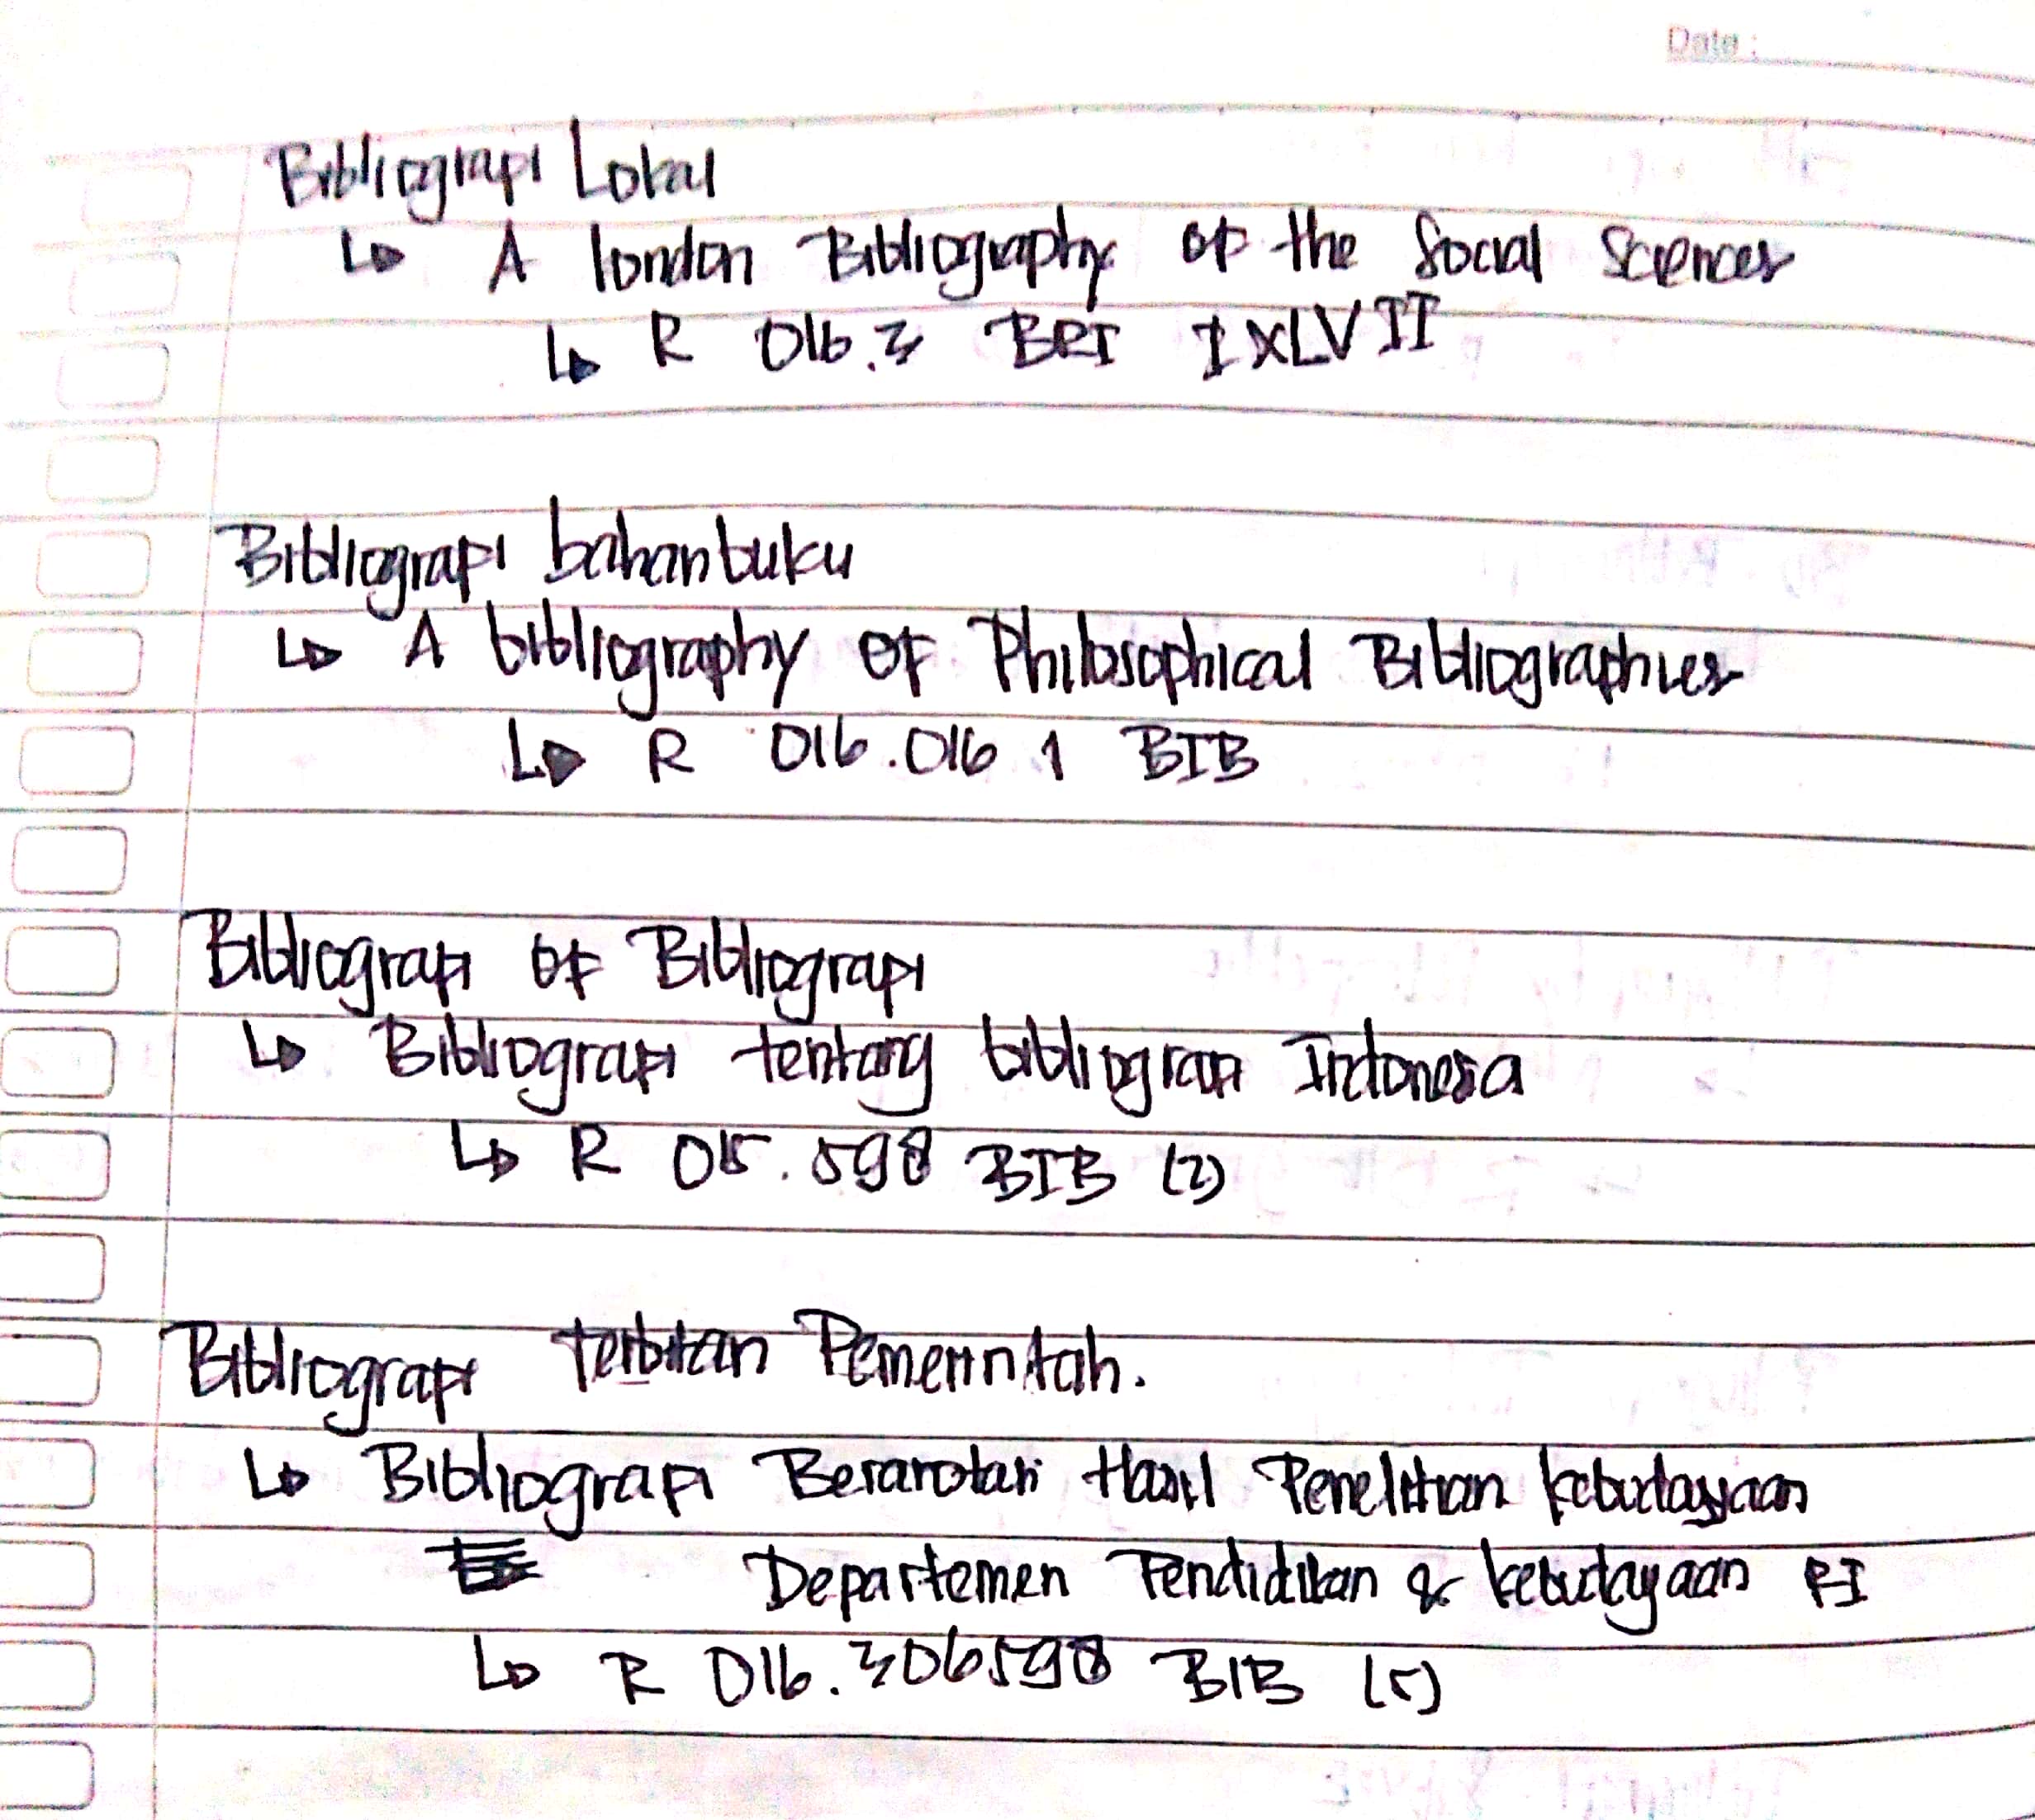 Date :
Bibliografi Lokal
↳ A london Bibliography of the Social Sciences
↳ R 016.3 BRI IXLVII
Bibliografi bahan buku
↳ A bibliography of Philosophical Bibliographies
↳ R 016.016 1 BIB
Bibliografi of Bibliografi
↳ Bibliografi tentang bibliografi Indonesia
↳ R 015.598 BIB (2)
Bibliografi terbitan Pemerintah.
↳ Bibliografi Beranotasi Hasil Penelitian kebudayaan
Departemen Pendidikan & kebudayaan RI
↳ R 016.306598 BIB (5)